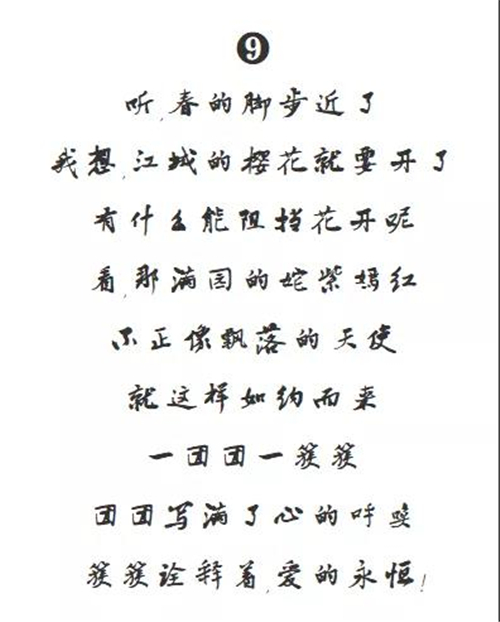 9
听,春的脚步近了
我想,江城的樱花就要开了
有什么能阻挡花开呢
看,那满园的姹紫嫣红
不正像飘落的天使
就这样如约而来
一团团一簇簇
团团写满了心的呼唤
簇簇诠释着,爱的永恒!